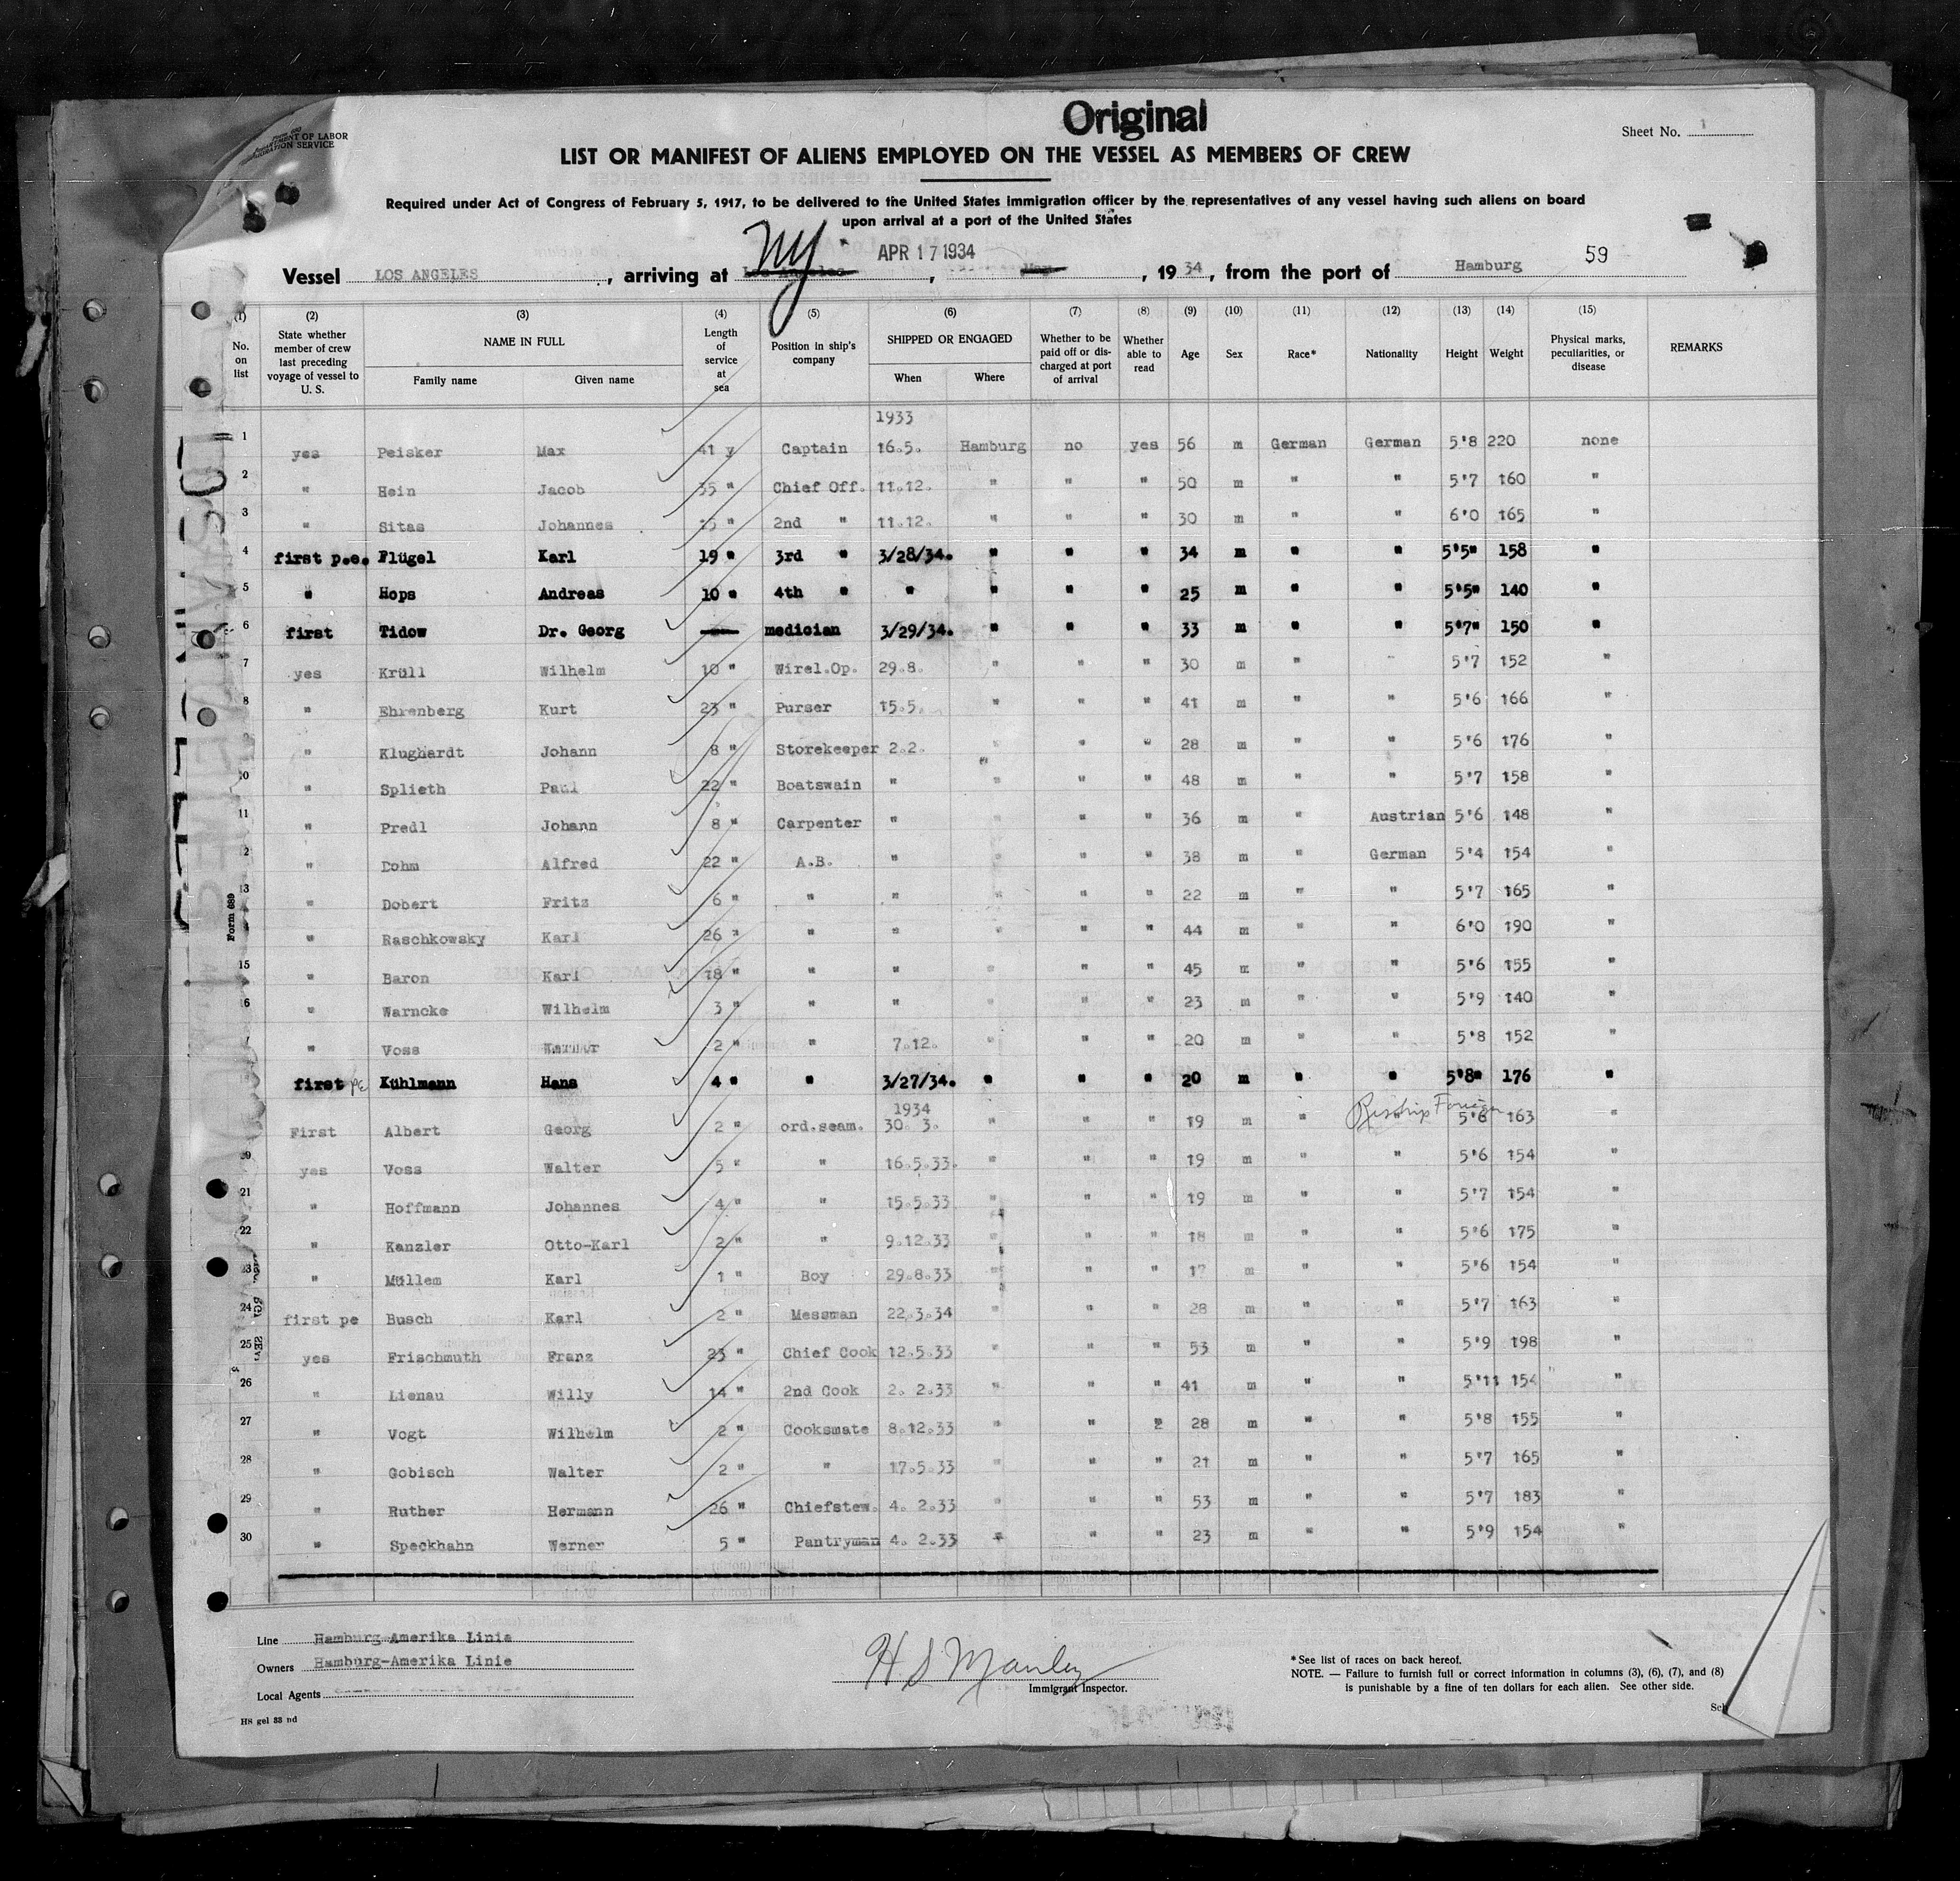 Original
Sheet No. 1
DEPARTMENT OF LABOR
IMMIGRATION SERVICE
LIST OR MANIFEST OF ALIENS EMPLOYED ON THE VESSEL AS MEMBERS OF CREW
Required under Act of Congress of February 5, 1917, to be delivered to the United States immigration officer by the representatives of any vessel having such aliens on board
upon arrival at a port of the United States
Vessel LOS ANGELES, arriving at Los Angeles NY, APR 17 1934 May, 1934, from the port of Hamburg 59
(1) (2) (3) (4) (5) (6) (7) (8) (9) (10) (11) (12) (13) (14) (15)
No. on list State whether member of crew last preceding voyage of vessel to U. S. NAME IN FULL Family name Given name Length of service at sea Position in ship's company SHIPPED OR ENGAGED When Where Whether to be paid off or discharged at port of arrival Whether able to read Age Sex Race* Nationality Height Weight Physical marks, peculiarities, or disease REMARKS
1933
1 yes Peisker Max 41 y Captain 16.5. Hamburg no yes 56 m German German 5'8 220 none
2 " Hein Jacob 35 " Chief Off. 11.12. " " " 50 m " " 5'7 160 "
3 " Sitas Johannes 15 " 2nd " 11.12. " " " 30 m " " 6'0 165 "
4 first p.e. Flügel Karl 19 " 3rd " 3/28/34. " " " 34 m " " 5'5" 158 "
5 " Hops Andreas 10 " 4th " " " " " 25 m " " 5'5" 140 "
6 first Tidow Dr. Georg — medician 3/29/34. " " " 33 m " " 5'7" 150 "
7 yes Krüll Wilhelm 10 " Wirel.Op. 29.8. " " " 30 m " " 5'7 152 "
8 " Ehrenberg Kurt 23 " Purser 15.5. " " " 41 m " " 5'6 166 "
" Klughardt Johann 8 " Storekeeper 2.2. " " " 28 m " " 5'6 176 "
10 " Splieth Paul 22 " Boatswain " " " " 48 m " " 5'7 158 "
11 " Predl Johann 8 " Carpenter " " " " 36 m " Austrian 5'6 148 "
12 " Dohm Alfred 22 " A.B. " " " " 38 m " German 5'4 154 "
13 " Dobert Fritz 6 " " " " " " 22 m " " 5'7 165 "
" Raschkowsky Karl 26 " " " " " " 44 m " " 6'0 190 "
15 " Baron Karl 18 " " " " " " 45 m " " 5'6 155 "
16 " Warncke Wilhelm 3 " " " " " " 23 m " " 5'9 140 "
7 " Voss 2 " " 7.12. " " " 20 m " " 5'8 152 "
first pe Kühlmann Hans 4 " " 3/27/34. " " " 20 m " " 5'8" 176 "
1934
First Albert Georg 2 " ord.seam. 30. 3. " " " 19 m " " 5'6 163 "
20 yes Voss Walter 5 " " 16.5.33. " " " 19 m " " 5'6 154 "
21 " Hoffmann Johannes 4 " " 15.5.33 " " " 19 m " " 5'7 154 "
22 " Kanzler Otto-Karl 2 " " 9.12.33 " " " 18 m " " 5'6 175 "
23 " Müllem Karl 1 " Boy 29.8.33 " " " 17 m " " 5'6 154 "
24 first pe Busch Karl 2 " Messman 22.3.34 " " " 28 m " " 5'7 163 "
25 yes Frischmuth Franz 23 " Chief Cook 12.5.33 " " " 53 m " " 5'9 198 "
26 " Lienau Willy 14 " 2nd Cook 2. 2.33 " " " 41 m " " 5'11 154 "
27 " Vogt Wilhelm 2 " Cooksmate 8.12.33 " " 2 28 m " " 5'8 155 "
28 " Gobisch Walter 2 " " 17.5.33 " " " 21 m " " 5'7 165 "
29 " Ruther Hermann 26 " Chiefstew. 4. 2.33 " " " 53 m " " 5'7 183 "
30 " Speckhahn Werner 5 " Pantryman 4. 2.33 " " " 23 m " " 5'9 154 "
Form 689
LOS ANGELES
Line Hamburg-Amerika Linie
Owners Hamburg-Amerika Linie
Local Agents
HS gel 33 nd
H S Manley
Immigrant Inspector.
*See list of races on back hereof.
NOTE. — Failure to furnish full or correct information in columns (3), (6), (7), and (8)
is punishable by a fine of ten dollars for each alien. See other side.